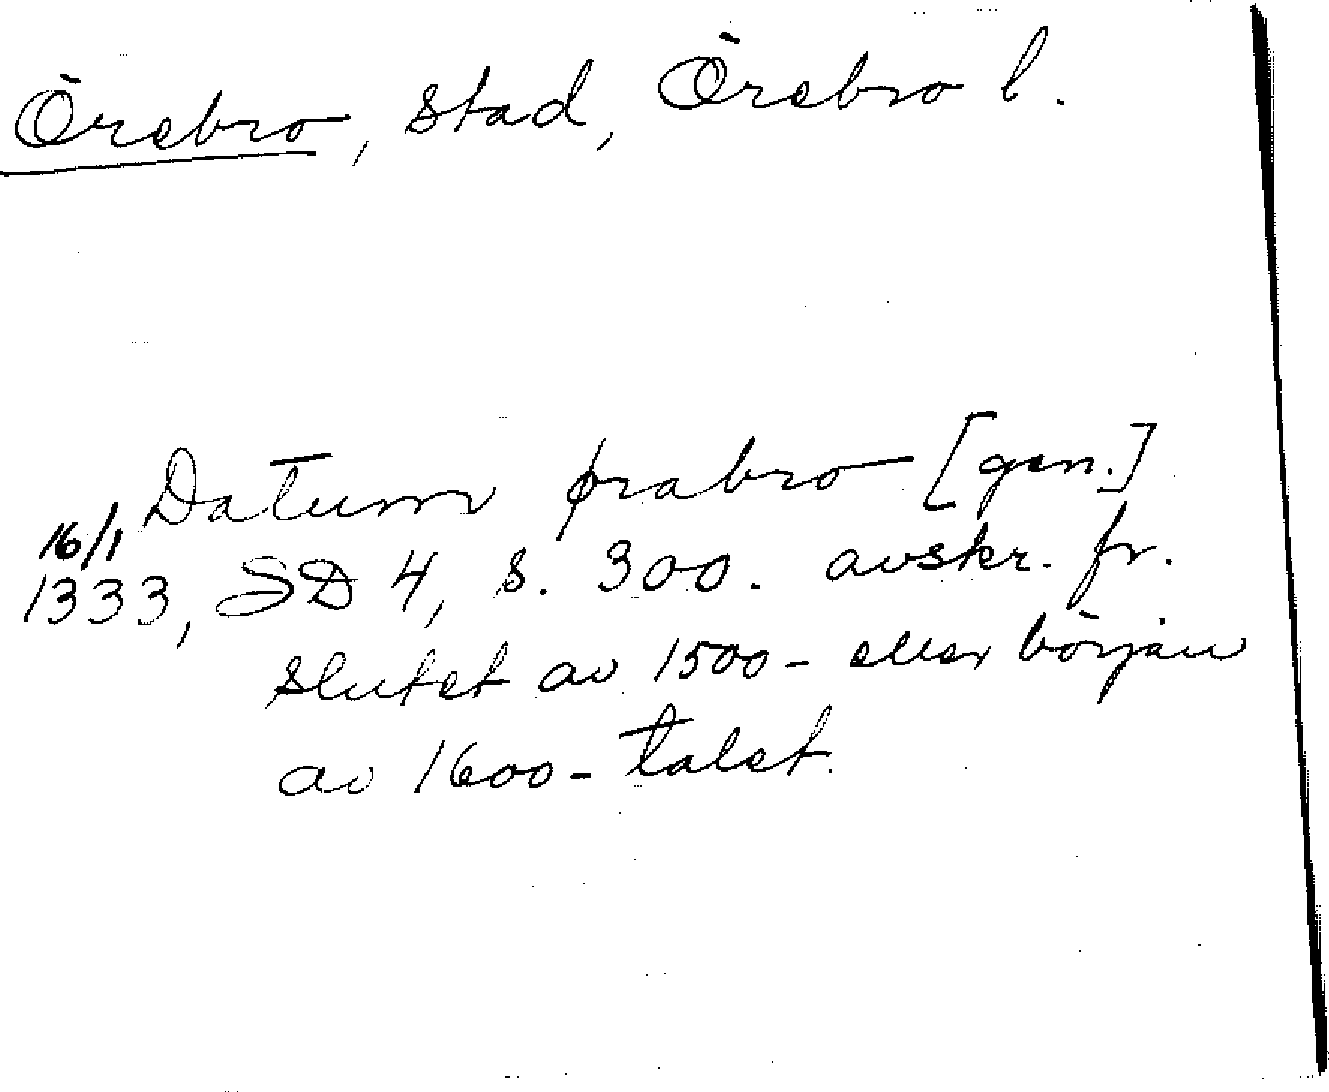 Örebro, stad, Örebro l.
Datum ørabro [gen.]
16/1
1333, SD 4, s. 300. avskr. fr.
slutet av 1500- eller början
av 1600-talet.